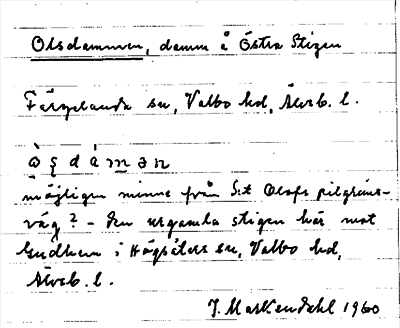 Olsdammen, damm å Östra Stigen
Färgelanda sn, Valbo hd, Älvsb. l.
ò ş d á m ə n
möjligen minne från S:t Olofs pilgrims-
väg? – Den urgamla stigen här mot
Gudhem i Högsäters sn, Valbo hd,
Älvsb. l.
J. Markendahl 1960